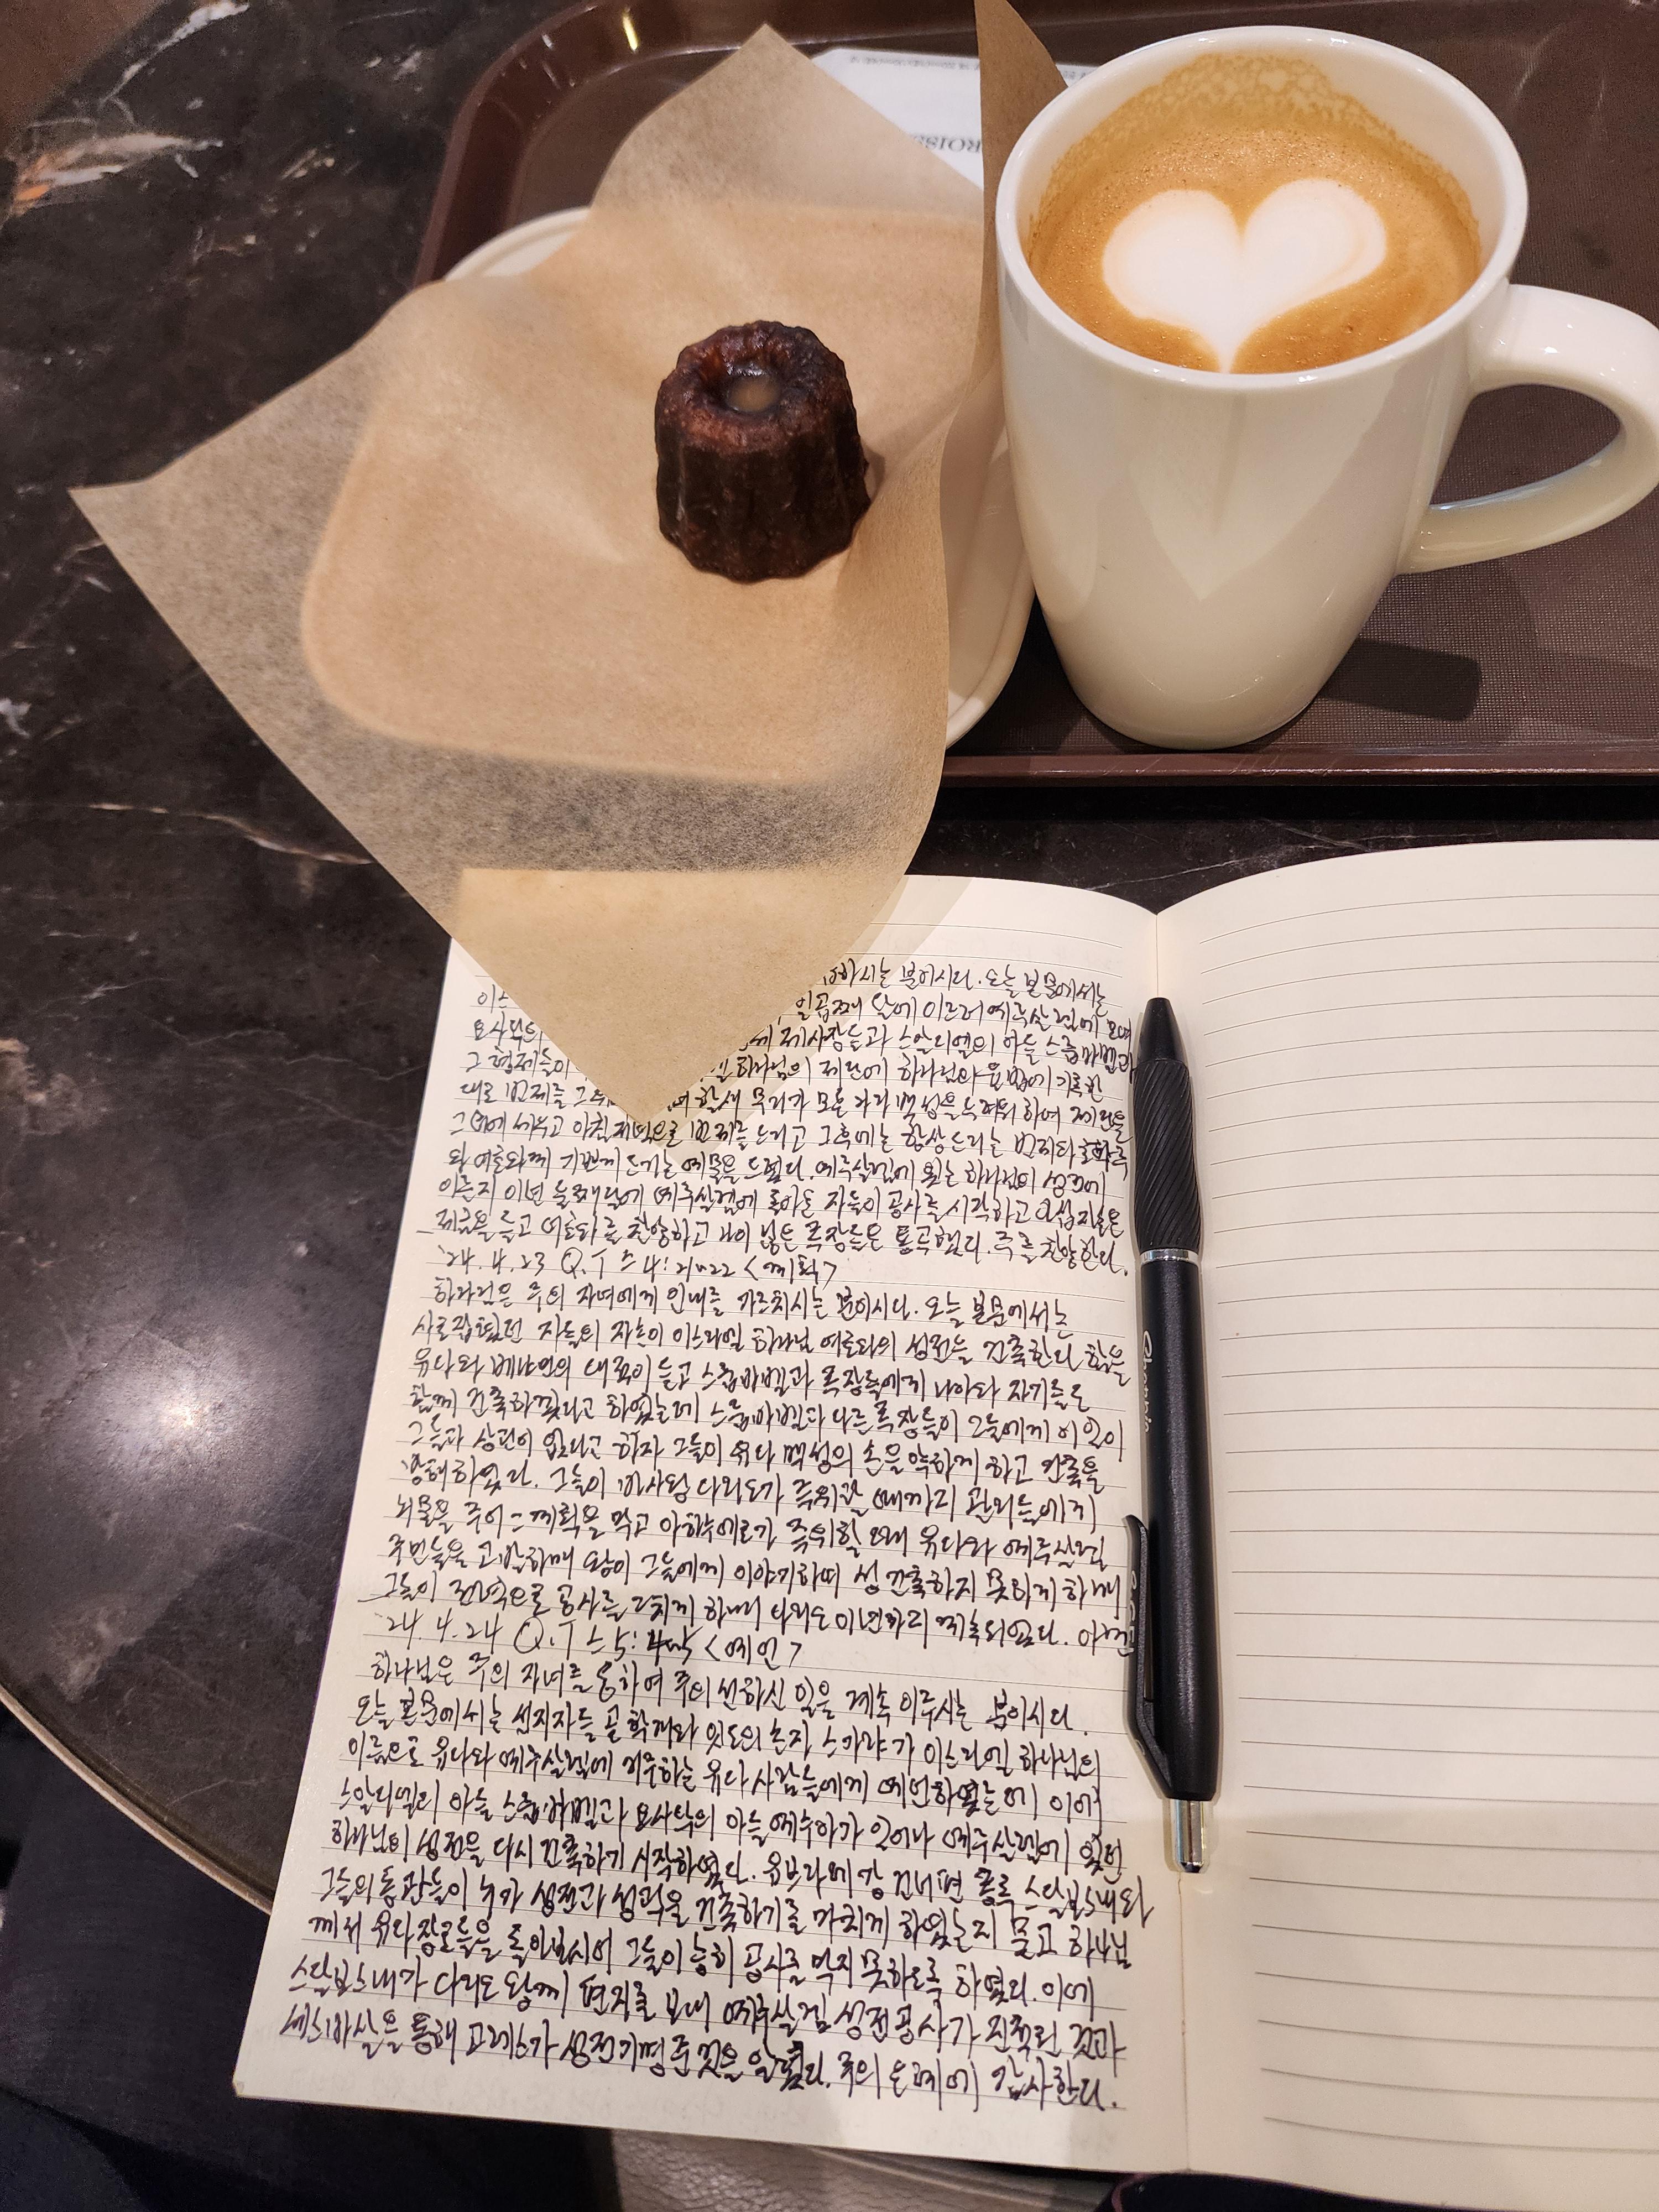 ROISS
하시는 분이시다. 오늘 본문에서는
이스 일곱째 달에 이르러 예루살렘에 모여
요사닥의 제사장들과 스알디엘의 아들 스룹바벨과
그 형제들이 하나님의 제단에 하나님의 율법에 기록한
대로 번제를 그 할새 무리가 모든 나라 백성을 두려워 하여 제단을
그 터에 세우고 아침 저녁으로 번제를 드리고 그 후에는 항상 드리는 번제와 초하루
와 여호와께 기쁘게 드리는 예물을 드렸다. 예루살렘에 있는 하나님의 성전에
이른지 이년 둘째달에 예루살렘에 돌아온 자들이 공사를 시작하고 제사장들은
제금을 들고 여호와를 찬양하고 나이 많은 족장들은 통곡했다. 주를 찬양한다.
'24. 4. 23 Q.T 스4:1~22 <계획>
하나님은 주의 자녀에게 인내를 가르치시는 분이시다. 오늘 본문에서는
사로잡혔던 자들의 자손이 이스라엘 하나님 여호와의 성전을 건축한다 함을
유다와 베냐민의 대적이 듣고 스룹바벨과 족장들에게 나아와 자기들도
함께 건축하겠다고 하였는데 스룹바벨과 다른 족장들이 그들에게 이 일이
그들과 상관이 없다고 하자 그들이 유다 백성의 손을 약하게 하고 건축을
방해하였다. 그들이 바사왕 다리오가 즉위할 때까지 관리들에게
뇌물을 주어 그 계획을 막고 아하수에로가 즉위할 때에 유다와 예루살렘
주민들을 고발하매 왕이 그들에게 이야기하며 성 건축하지 못하게 하매
그들이 권력으로 공사를 그치게 하매 다리오 이년까지 계속되었다. 아멘
'24. 4. 24 Q.T 스5: <예언>
하나님은 주의 자녀를 통하여 주의 선하신 일을 계속 이루시는 분이시다.
오늘 본문에서는 선지자들 곧 학개와 잇도의 손자 스가랴가 이스라엘 하나님의
이름으로 유다와 예루살렘에 거주하는 유다 사람들에게 예언하였는데 이에
스알디엘의 아들 스룹바벨과 요사닥의 아들 예수아가 일어나 예루살렘에 있던
하나님의 성전을 다시 건축하기 시작하였다. 유브라데 강 건너편 총독 스달보스내와
그들의 동관들이 누가 성전과 성곽을 건축하기를 마치게 하였는지 묻고 하나님
께서 유다 장로들을 돌아보시어 그들이 능히 공사를 막지 못하도록 하였다. 이에
스달보스내가 다리오 왕께 편지를 보내 예루살렘 성전공사가 진척된 것과
세스바살을 통해 고레스가 성전기명 준 것을 알렸다. 주의 은혜에 감사한다.